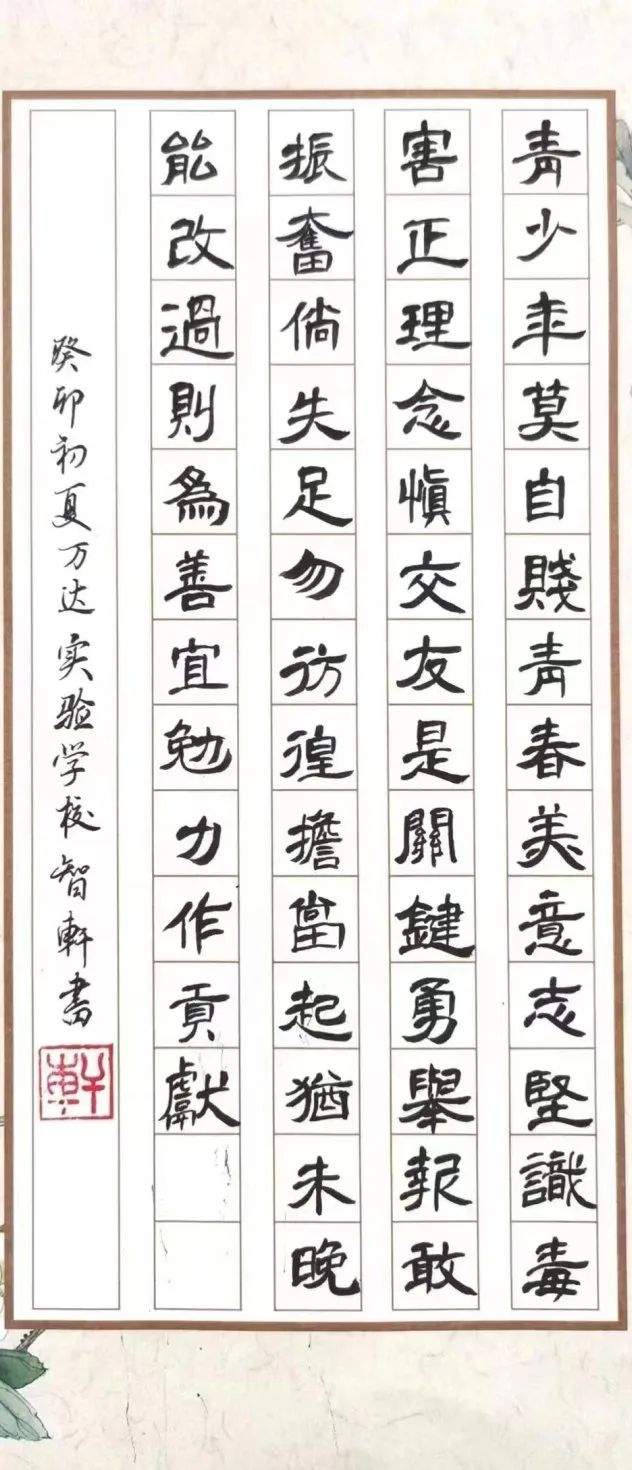 青少年莫自賤青春美意志堅識毒
害正理念慎交友是關鍵勇舉報敢
振奮倘失足勿彷徨擔當起猶未晚
能改過則為善宜勉力作貢獻
癸卯初夏万达实验学校智軒書
軒